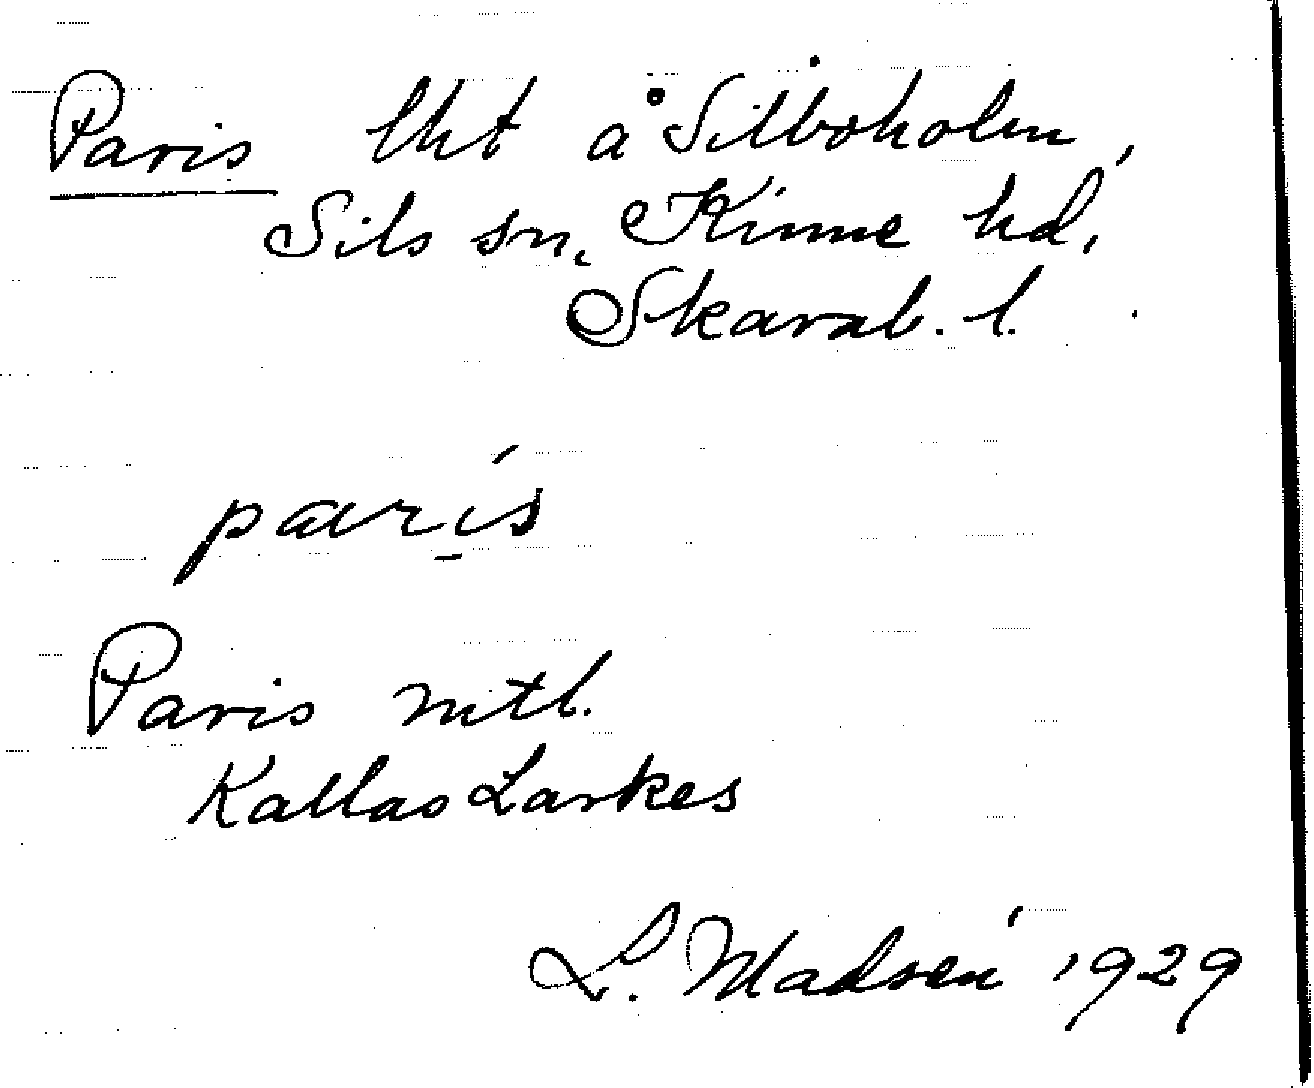 Paris lht å Silboholm,
Sils sn, Kinne hd,
Skarab. l.
paris
Paris mtl.
Kallas Larkes
L. Madsén 1929